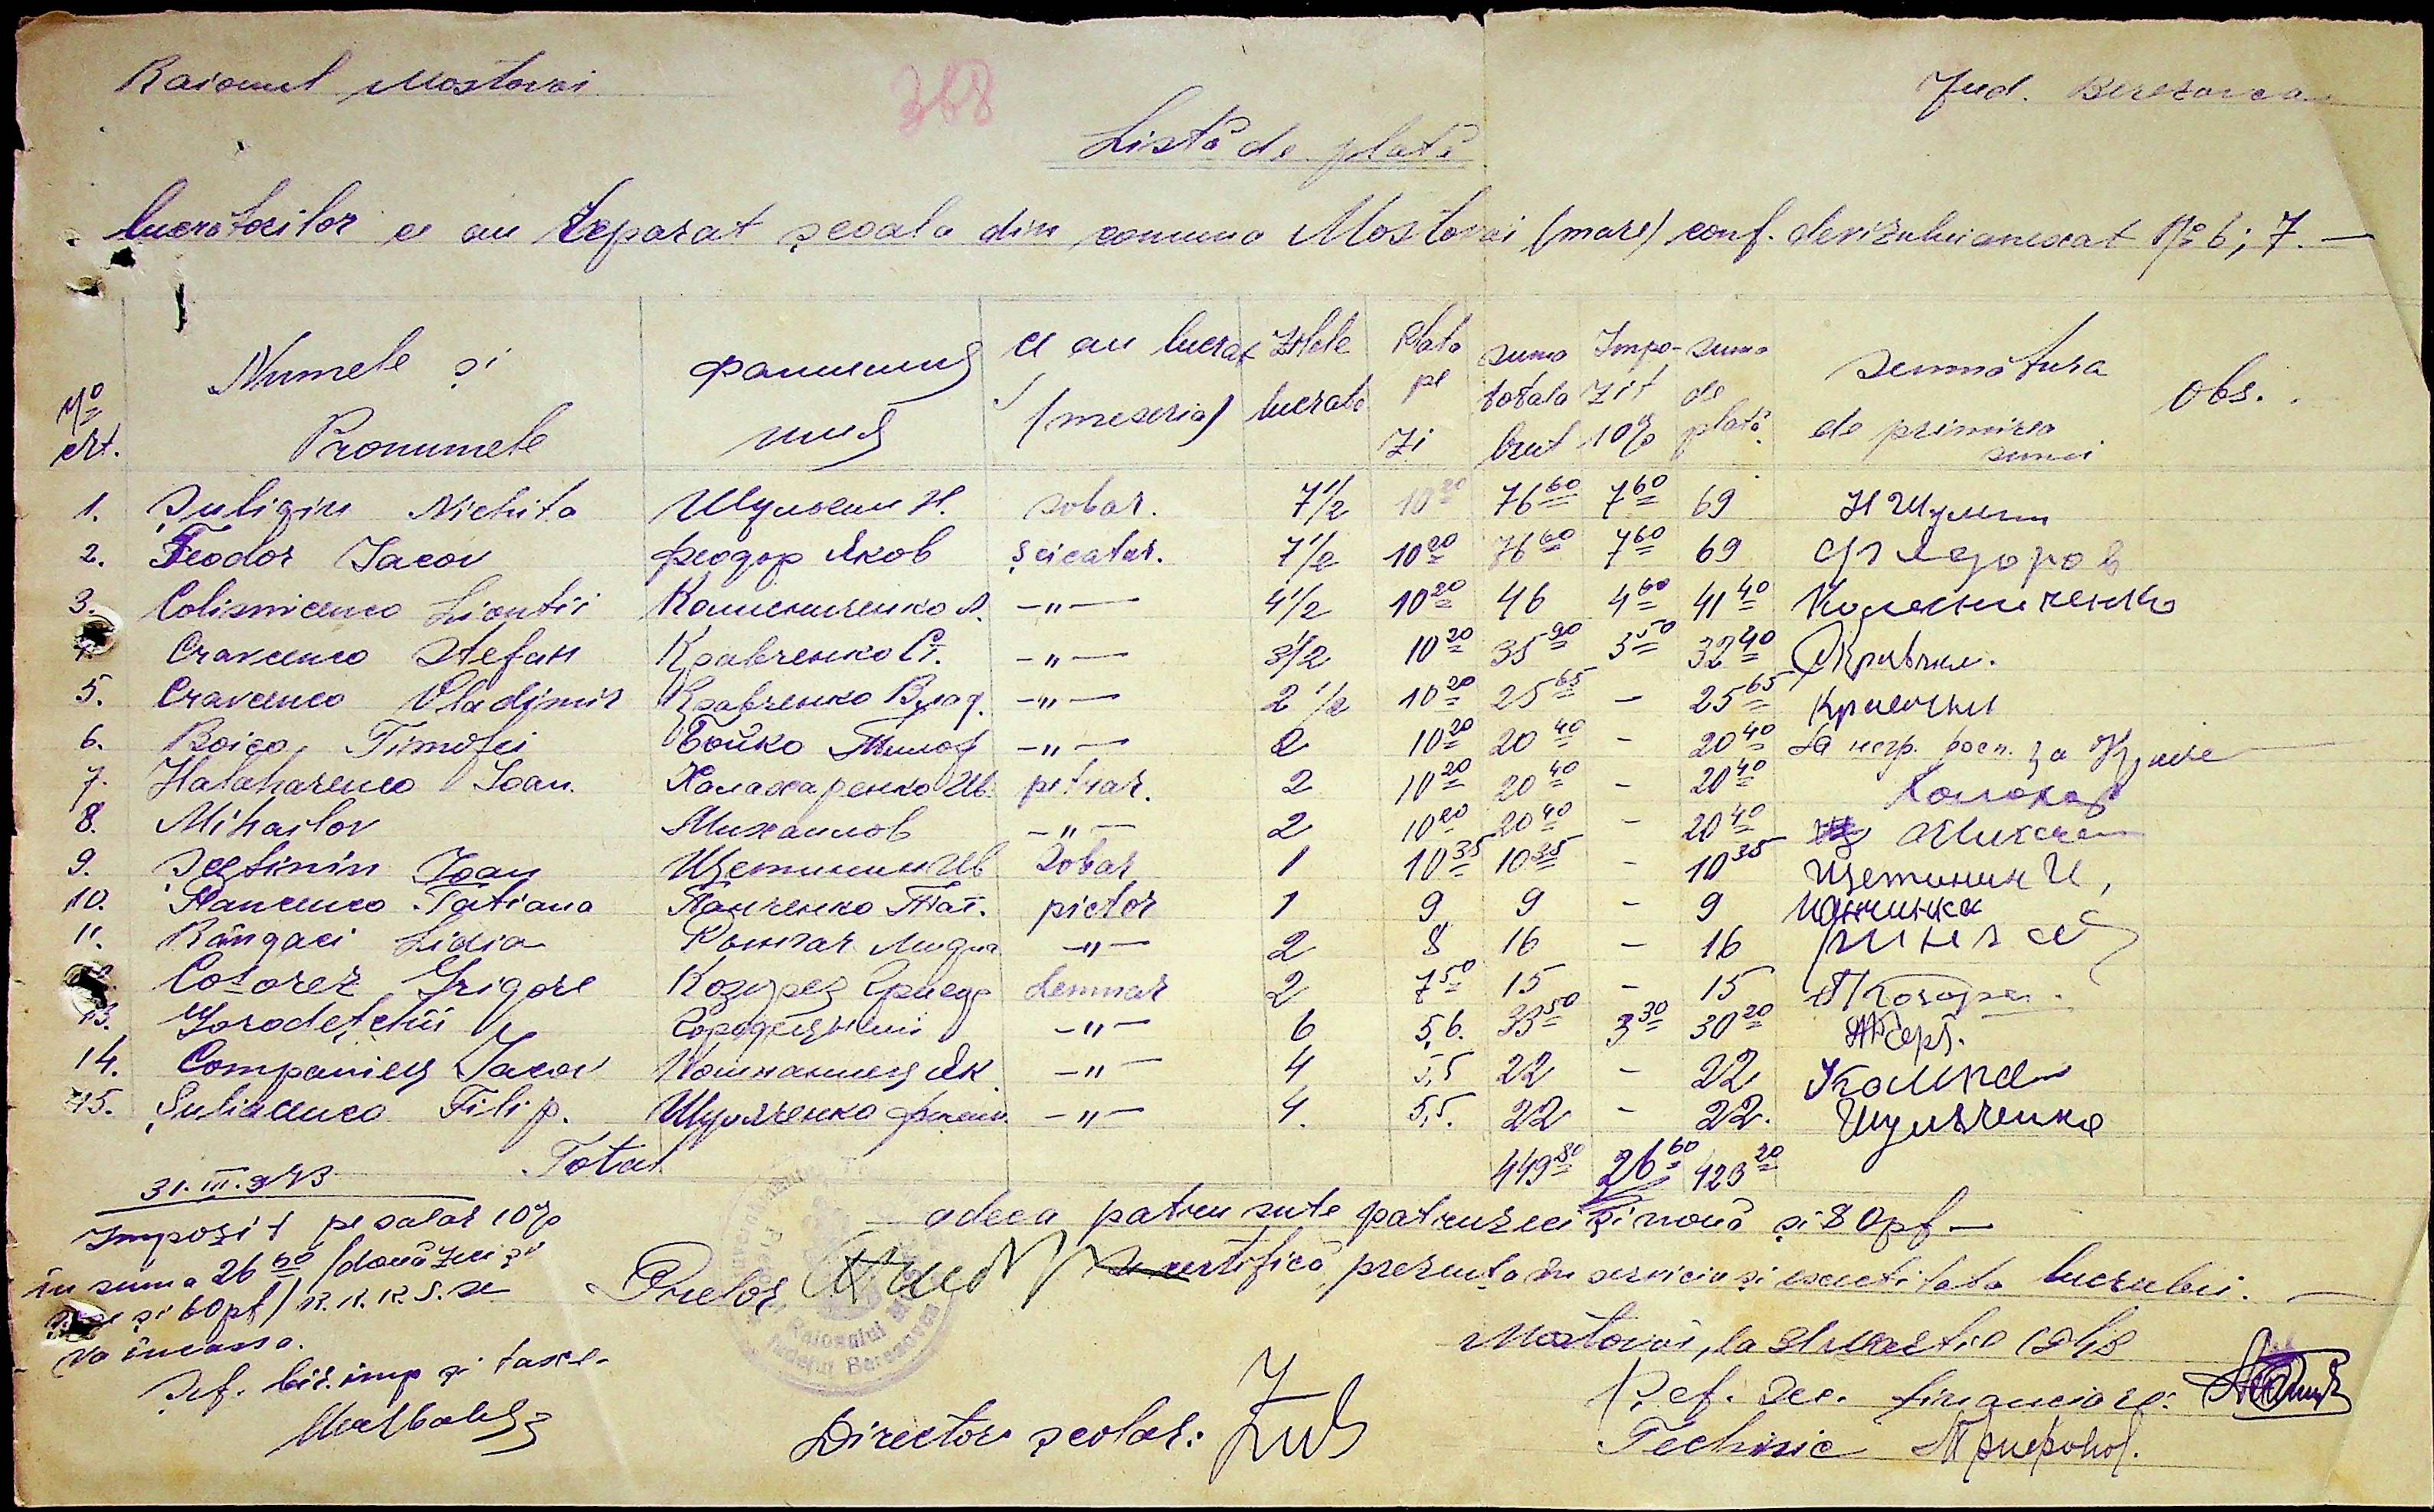 Raionul Mostovoi
368
Jud. Berezovca
Listă de plată
lucrătorilor ce au reparat școala din comuna Mostovoi (mare) conf. devizului anexat № 6; 7. —
№ crt. Numele și Pronumele фамилия имя ce au lucrat (meseria) Zilele lucrate Plata pe zi suma totala brut Impozit 10% suma de plată semnătura de primirea sumei Obs.
1. Șuligin Nichita Шулыгин Н. sobar. 7½ 10 20 76 60 7 60 69 Н Шулыгин
2. Feodor Iacov Феодор Яков șeicatur. 7½ 10 20 76 60 7 60 69 Федоров
3. Colisnicenco Liontii Колисниченко Л. —"— 4½ 10 20 46 4 60 41 40 Колесниченко
Cravcenco Stefan Кравченко Ст. —"— 3½ 10 20 35 90 3 50 32 40
5. Cravcenco Vladimir Кравченко Влад. —"— 2½ 10 20 25 65 - 25 65
6. Boico, Timofei Бойко Тимоф —"— 2 10 20 20 40 - 20 40 За негр. росп. за
7. Halaharenco Ioan. Халахаренко Ив. petrar. 2 10 20 20 40 - 20 40
8. Mihailov Михаилов —"— 2 10 20 20 40 - 20 40
9. Șcetinin Ioan Щетинин Ив Sobar 1 10 35 10 35 - 10 35 Щетинин И,
10. Pancenco Tatiana Панченко Тат. pictor 1 9 9 - 9
11. Rângaci Lidia Рынгач Лидия —"— 2 8 16 - 16
Cozorez Grigore Козорез Григор lemnar 2 7 50 15 - 15
13. Gorodețchii Городецкий —"— 6 5,6. 33 50 3 30 30 20
14. Companieț Iacov Компаниец Як —"— 4 5,5 22 - 22
15. Șuliacenco Filip. Шуляченко Филип. —"— 4. 5,5. 22 - 22. Шуляченко
Total 449 80 26 60 423 20
adeca patru sute patruzeci și nouă și 80 pf —
Pretor
Se certifică prezența în serviciu și exactitata lucrului. —
Mostovoi, la 31 Martie 1943
31.III.943
Impozit pe salar 10%
în suma 26 60 /două zeci și
șase și 60 pf/ se
va încassa.
Șef. bir. imp și taxe-
Director școlar:
Șef. Sec. financiare:
Technic
Raionului
Județul Berezovca